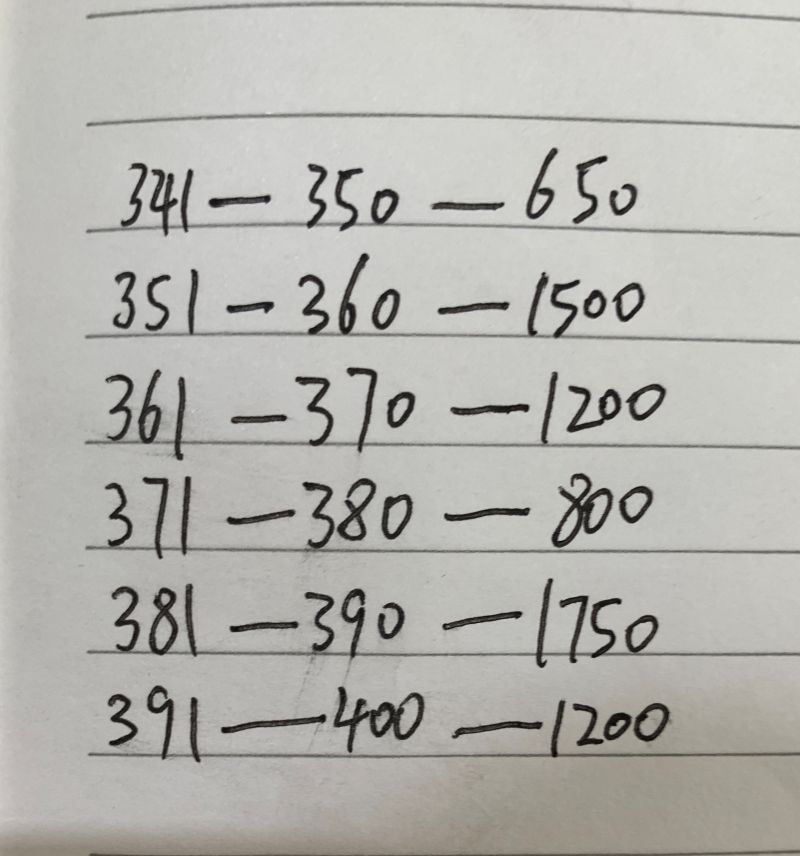 341 — 350 — 650
351 — 360 — 1500
361 — 370 — 1200
371 — 380 — 800
381 — 390 — 1750
391 — 400 — 1200